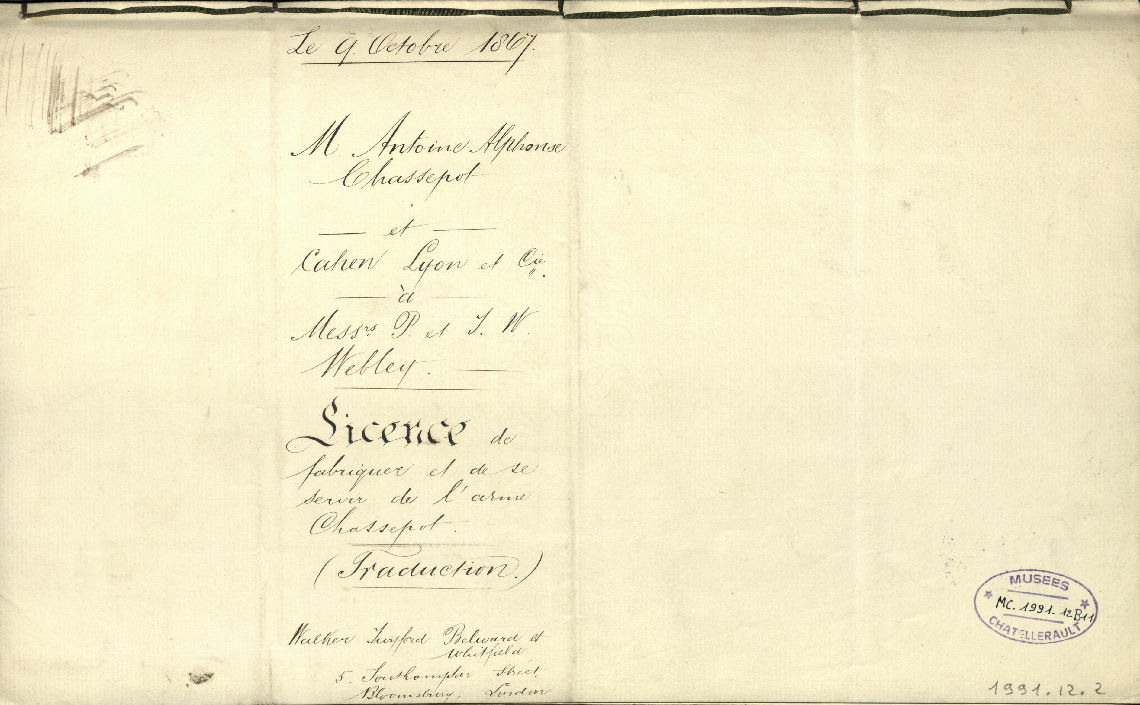 Le 9 Octobre 1867.
M. Antoine Alphonse
Chassepot
et
Cahen Lyon et Cie
à
Messrs P. et J. W.
Webley.
Licence de
fabriquer et de se
servir de l'arme
Chassepot.
(Traduction.)
Walker Twyford Belward et
Whitfield
5. Southampton Street
Bloomsbury, London
MUSEES
MC. 1991. 12B11
CHATELLERAULT
1991.12.2